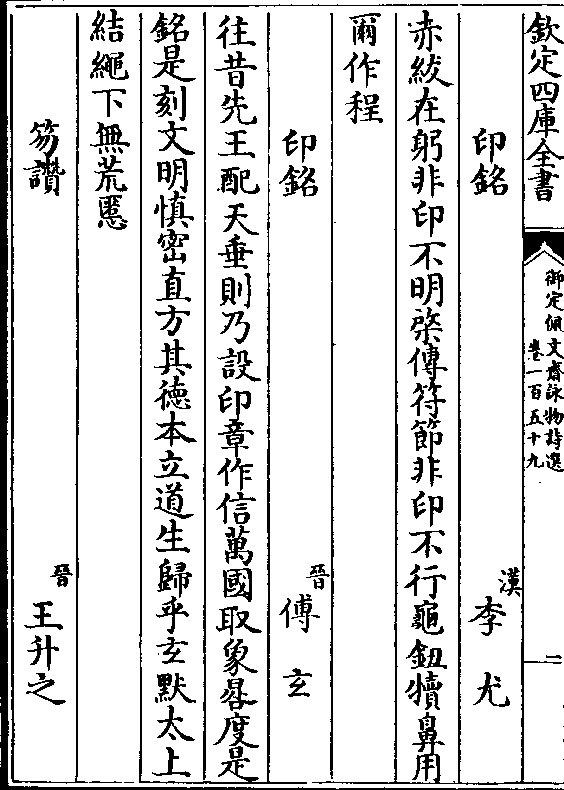 欽定四庫全書
御定佩文齋詠物詩選
卷一百五十九
二
印銘
漢 李尤
赤紱在躬非印不明棨傳符節非印不行龜鈕犢鼻用
爾作程
印銘
晉 傅玄
往昔先王配天垂則乃設印章作信萬國取象晷度是
銘是刻文明慎密直方其徳本立道生歸乎玄默太上
結繩下無荒慝
笏讚
晉 王升之